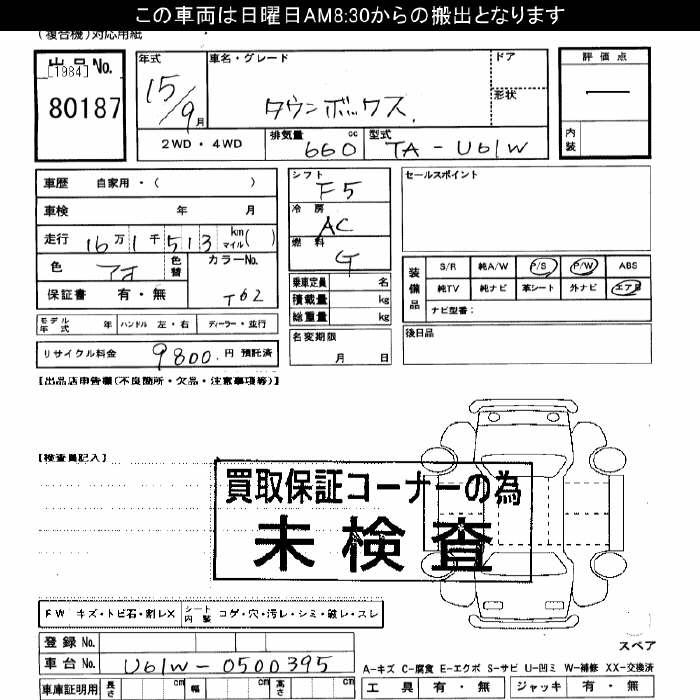 この車両は日曜日AM8:30からの搬出となります
(複合機)対応用紙
出品No.
[1984]
80187
年式
15/9月
車名・グレード
タウンボックス
ドア
形状
2WD・4WD
排気量
660
cc
型式
TA-U61W
評価点
内装
車歴 自家用・( )
車検 年 月
走行 16万1千513 km マイル( )
色 アオ
色替
カラーNo.
T62
保証書 有・無
モデル年式 年 ハンドル 左・右 ディーラー・並行
リサイクル料金 9800.円 預託済
シフト
F5
冷房
AC
燃料
G
乗車定員 名
積載量 kg
総重量 kg
名変期限
月 日
セールスポイント
装備品
S/R 純A/W P/S P/W ABS
純TV 純ナビ 革シート 外ナビ エアB
ナビ型番:
後日品
【出品店申告欄(不良箇所・欠品・注意事項等)】
【検査員記入】
買取保証コーナーの為
未検査
FW キズ・トビ石・割レX
シート内装 コゲ・穴・汚レ・シミ・破レ・スレ
登録No.
車台No. U61W-0500395
車庫証明用 長さ cm 幅 cm 高さ cm
スペア
A-キズ C-腐食 E-エクボ S-サビ U-凹ミ W-補修 XX-交換済
工具 有・無 ジャッキ 有・無